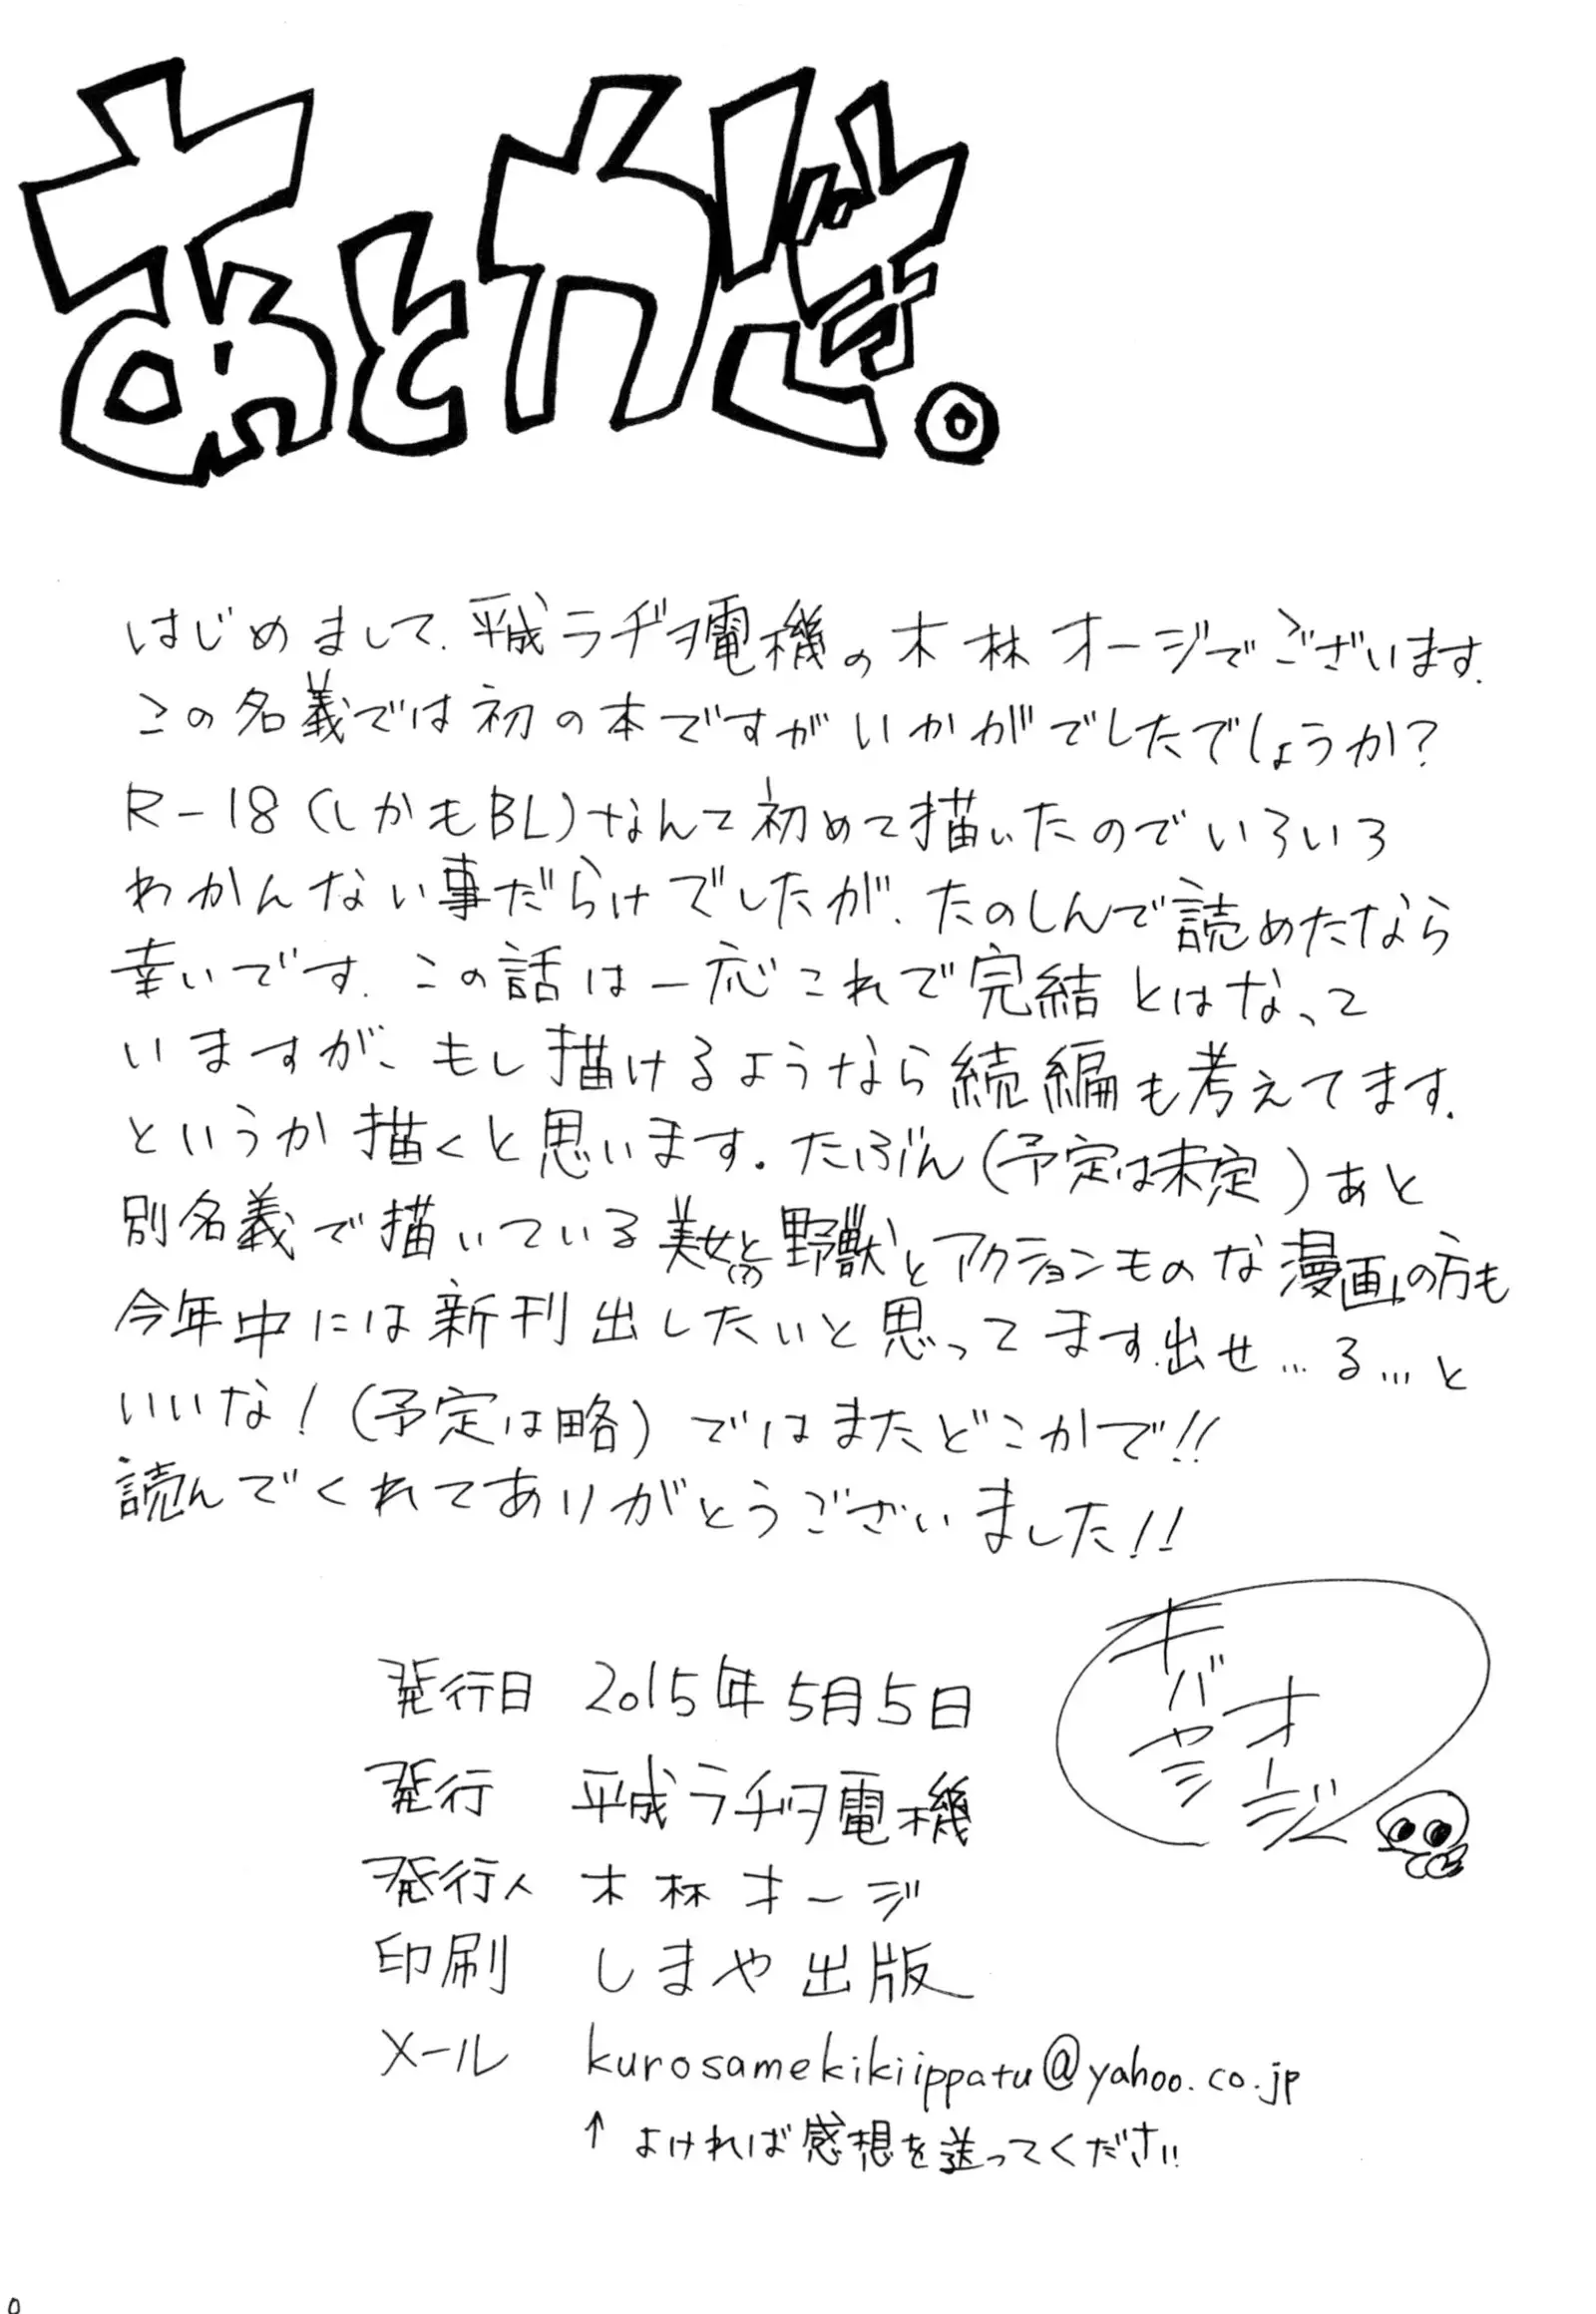 あとがき。
はじめまして、平成ラヂヲ電機の木林オージでございます。
この名義では初の本ですがいかがでしたでしょうか?
R-18(しかもBL)なんて初めて描いたのでいろいろ
わかんない事だらけでしたが、たのしんで読めたなら
幸いです。この話は一応これで完結とはなって
いますが、もし描けるようなら続編も考えてます。
というか描くと思います。たぶん(予定は未定)あと
別名義で描いている美女と(の)野獣とアクションものな漫画の方も
今年中には新刊出したいと思ってます。出せ…る…と
いいな!(予定は略)ではまたどこかで!!
読んでくれてありがとうございました!!
キバヤシ
オージ
発行日 2015年5月5日
発行 平成ラヂヲ電機
発行人 木林オージ
印刷 しまや出版
メール kurosamekikiippatu@yahoo.co.jp
↑よければ感想を送ってください